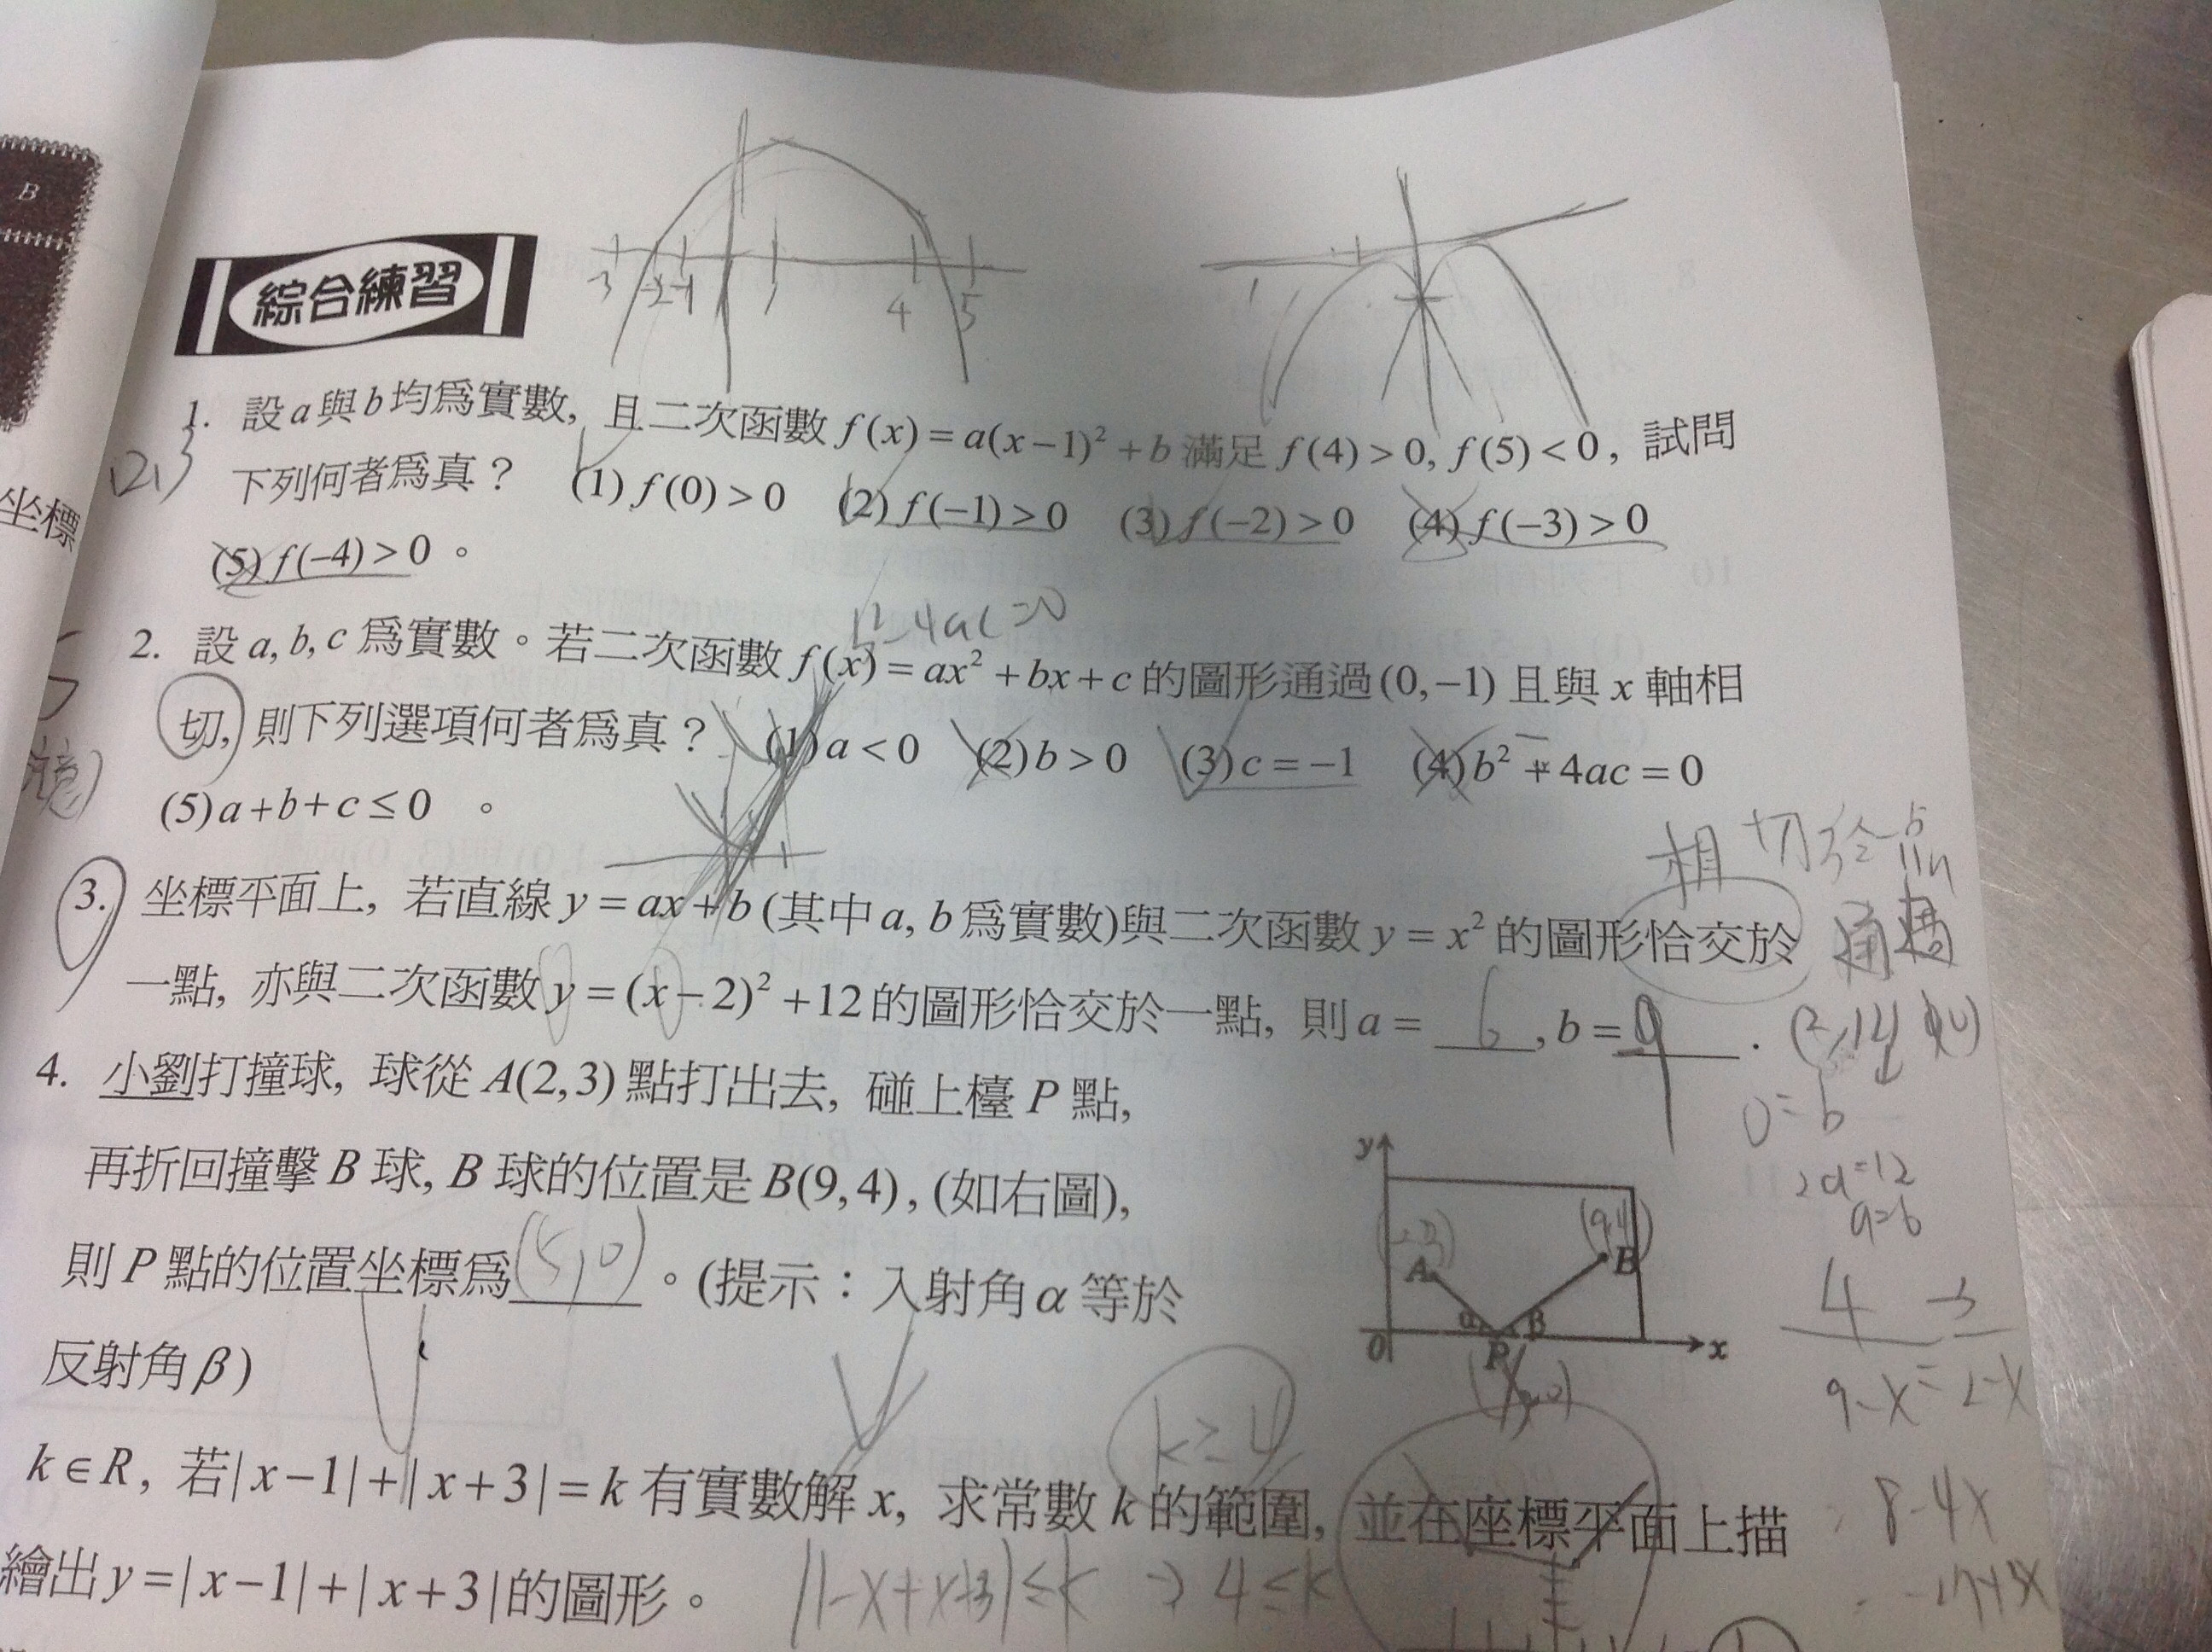 B
坐標
綜合練習
-3 -2 -1 1 4 5
1. 設a與b均爲實數, 且二次函數 f(x)=a(x−1)²+b 滿足 f(4)>0, f(5)<0, 試問
下列何者爲真？ (1) f(0)>0 (2) f(−1)>0 (3) f(−2)>0 (4) f(−3)>0
(5) f(−4)>0 。
b²-4ac=0
2. 設 a, b, c 爲實數。若二次函數 f(x)=ax²+bx+c 的圖形通過(0,−1) 且與 x 軸相
切, 則下列選項何者爲真？ (1) a<0 (2) b>0 (3) c=−1 (4) b²+4ac=0
(5) a+b+c≤0 。
相切於一点
3. 坐標平面上, 若直線 y=ax+b (其中 a, b 爲實數)與二次函數 y=x² 的圖形恰交於
一點, 亦與二次函數 y=(x−2)²+12 的圖形恰交於一點, 則 a= 6 , b= 9 .
0=b
2a=12
a=6
4. 小劉打撞球, 球從 A(2,3) 點打出去, 碰上檯 P 點,
再折回撞擊 B 球, B 球的位置是 B(9,4), (如右圖),
則 P 點的位置坐標爲 (5,0) 。(提示：入射角 α 等於
反射角 β)
y
(2,3)
(9,4)
A
B
α
β
0
P
x
(x,0)
k≥4
k∈R, 若|x−1|+|x+3|=k 有實數解 x, 求常數 k 的範圍, 並在座標平面上描
繪出 y=|x−1|+|x+3|的圖形。
|1-x+x+3|≤k → 4≤k
8-4x